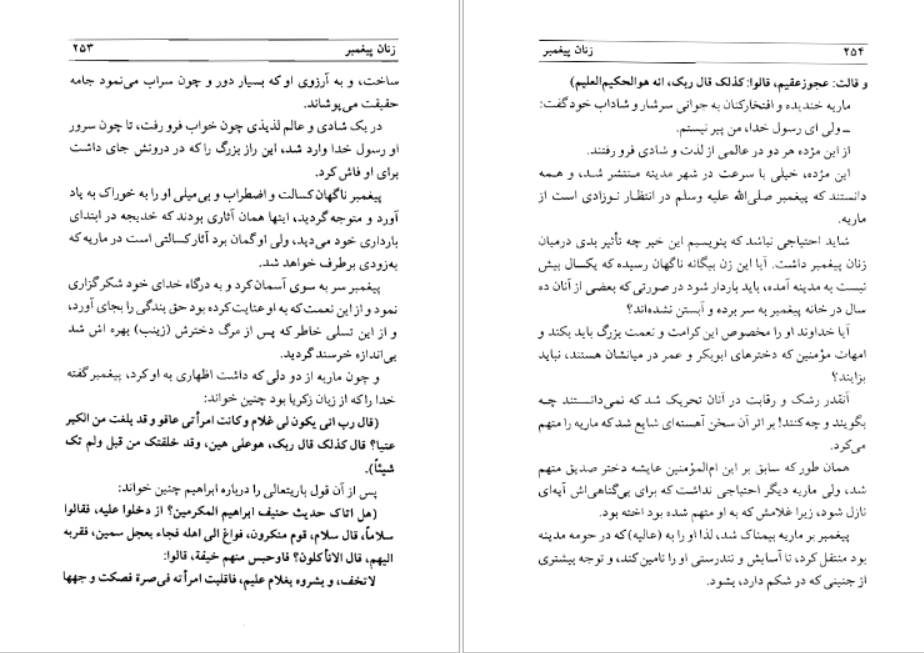 زنان پیغمبر ۲۵۳
ساخت، و به آرزوی او که بسیار دور و چون سراب می‌نمود جامه
حقیقت می‌پوشاند.
در یک شادی و عالم لذیذی چون خواب فرو رفت، تا چون سرور
او رسول خدا وارد شد، این راز بزرگ را که در درونش جای داشت
برای او فاش کرد.
پیغمبر ناگهان کسالت و اضطراب و بی‌میلی او را به خوراک به یاد
آورد و متوجه گردید، اینها همان آثاری بودند که خدیجه در ابتدای
بارداری خود می‌دید، ولی او گمان برد آثار کسالتی است در ماریه که
به‌زودی برطرف خواهد شد.
پیغمبر سر به سوی آسمان کرد و به درگاه خدای خود شکرگزاری
نمود و از این نعمت که به او عنایت کرده بود حق بندگی را بجای آورد،
و از این تسلی خاطر که پس از مرگ دخترش (زینب) بهره اش شد
بی‌اندازه خرسند گردید.
و چون ماریه از دو دلی که داشت اظهاری به او کرد، پیغمبر گفته
خدا را که از زبان زکریا بود چنین خواند:
(قال رب انی یکون لی غلام و کانت امرأتی عاقو و قد بلغت من الکبر
عتیا؟ قال کذلک قال ربک، هو علی هین، وقد خلقتک من قبل ولم تک
شیئاً).
پس از آن قول باریتعالی را درباره ابراهیم چنین خواند:
(هل اتاک حدیث حنیف ابراهیم المکرمین؟ از دخلوا علیه، فقالوا
سلاماً، قال سلام، قوم منکرون، فواغ الی اهله فجاء بعجل سمین، فقربه
الیهم، قال الاتأکلون؟ فاوحبس منهم خیفة، قالوا:
لاتخف، و بشروه بغلام علیم، فاقلبت امرأته فی صرة فصکت و جهها
۲۵۴ زنان پیغمبر
و قالت: عجوز عقیم، قالوا: کذلک قال ربک، انه هوالحکیم‌العلیم)
ماریه خندیده و افتخارکنان به جوانی سرشار و شاداب خود گفت:
ــ ولی ای رسول خدا، من پیر نیستم.
از این مژده هر دو در عالمی از لذت و شادی فرو رفتند.
این مژده، خیلی با سرعت در شهر مدینه منتشر شد، و همه
دانستند که پیغمبر صلی‌الله علیه وسلم در انتظار نوزادی است از
ماریه.
شاید احتیاجی نباشد که بنویسیم این خبر چه تأثیر بدی درمیان
زنان پیغمبر داشت. آیا این زن بیگانه ناگهان رسیده که یکسال بیش
نیست به مدینه آمده، باید باردار شود در صورتی که بعضی از آنان ده
سال در خانه پیغمبر به سر برده و آبستن نشده‌اند؟
آیا خداوند او را مخصوص این کرامت و نعمت بزرگ باید بکند و
امهات مؤمنین که دخترهای ابوبکر و عمر در میانشان هستند، نباید
بزایند؟
آنقدر رشک و رقابت در آنان تحریک شد که نمی‌دانستند چه
بگویند و چه کنند! بر اثر آن سخن آهسته‌ای شایع شد که ماریه را متهم
می‌کرد.
همان طور که سابق بر این ام‌المؤمنین عایشه دختر صدیق متهم
شد، ولی ماریه دیگر احتیاجی نداشت که برای بی‌گناهی‌اش آیه‌ای
نازل شود، زیرا غلامش که به او متهم شده بود اخته بود.
پیغمبر بر ماریه بیمناک شد، لذا او را به (عالیه) که در حومه مدینه
بود منتقل کرد، تا آسایش و تندرستی او را تامین کند، و توجه بیشتری
از جنینی که در شکم دارد، بشود.